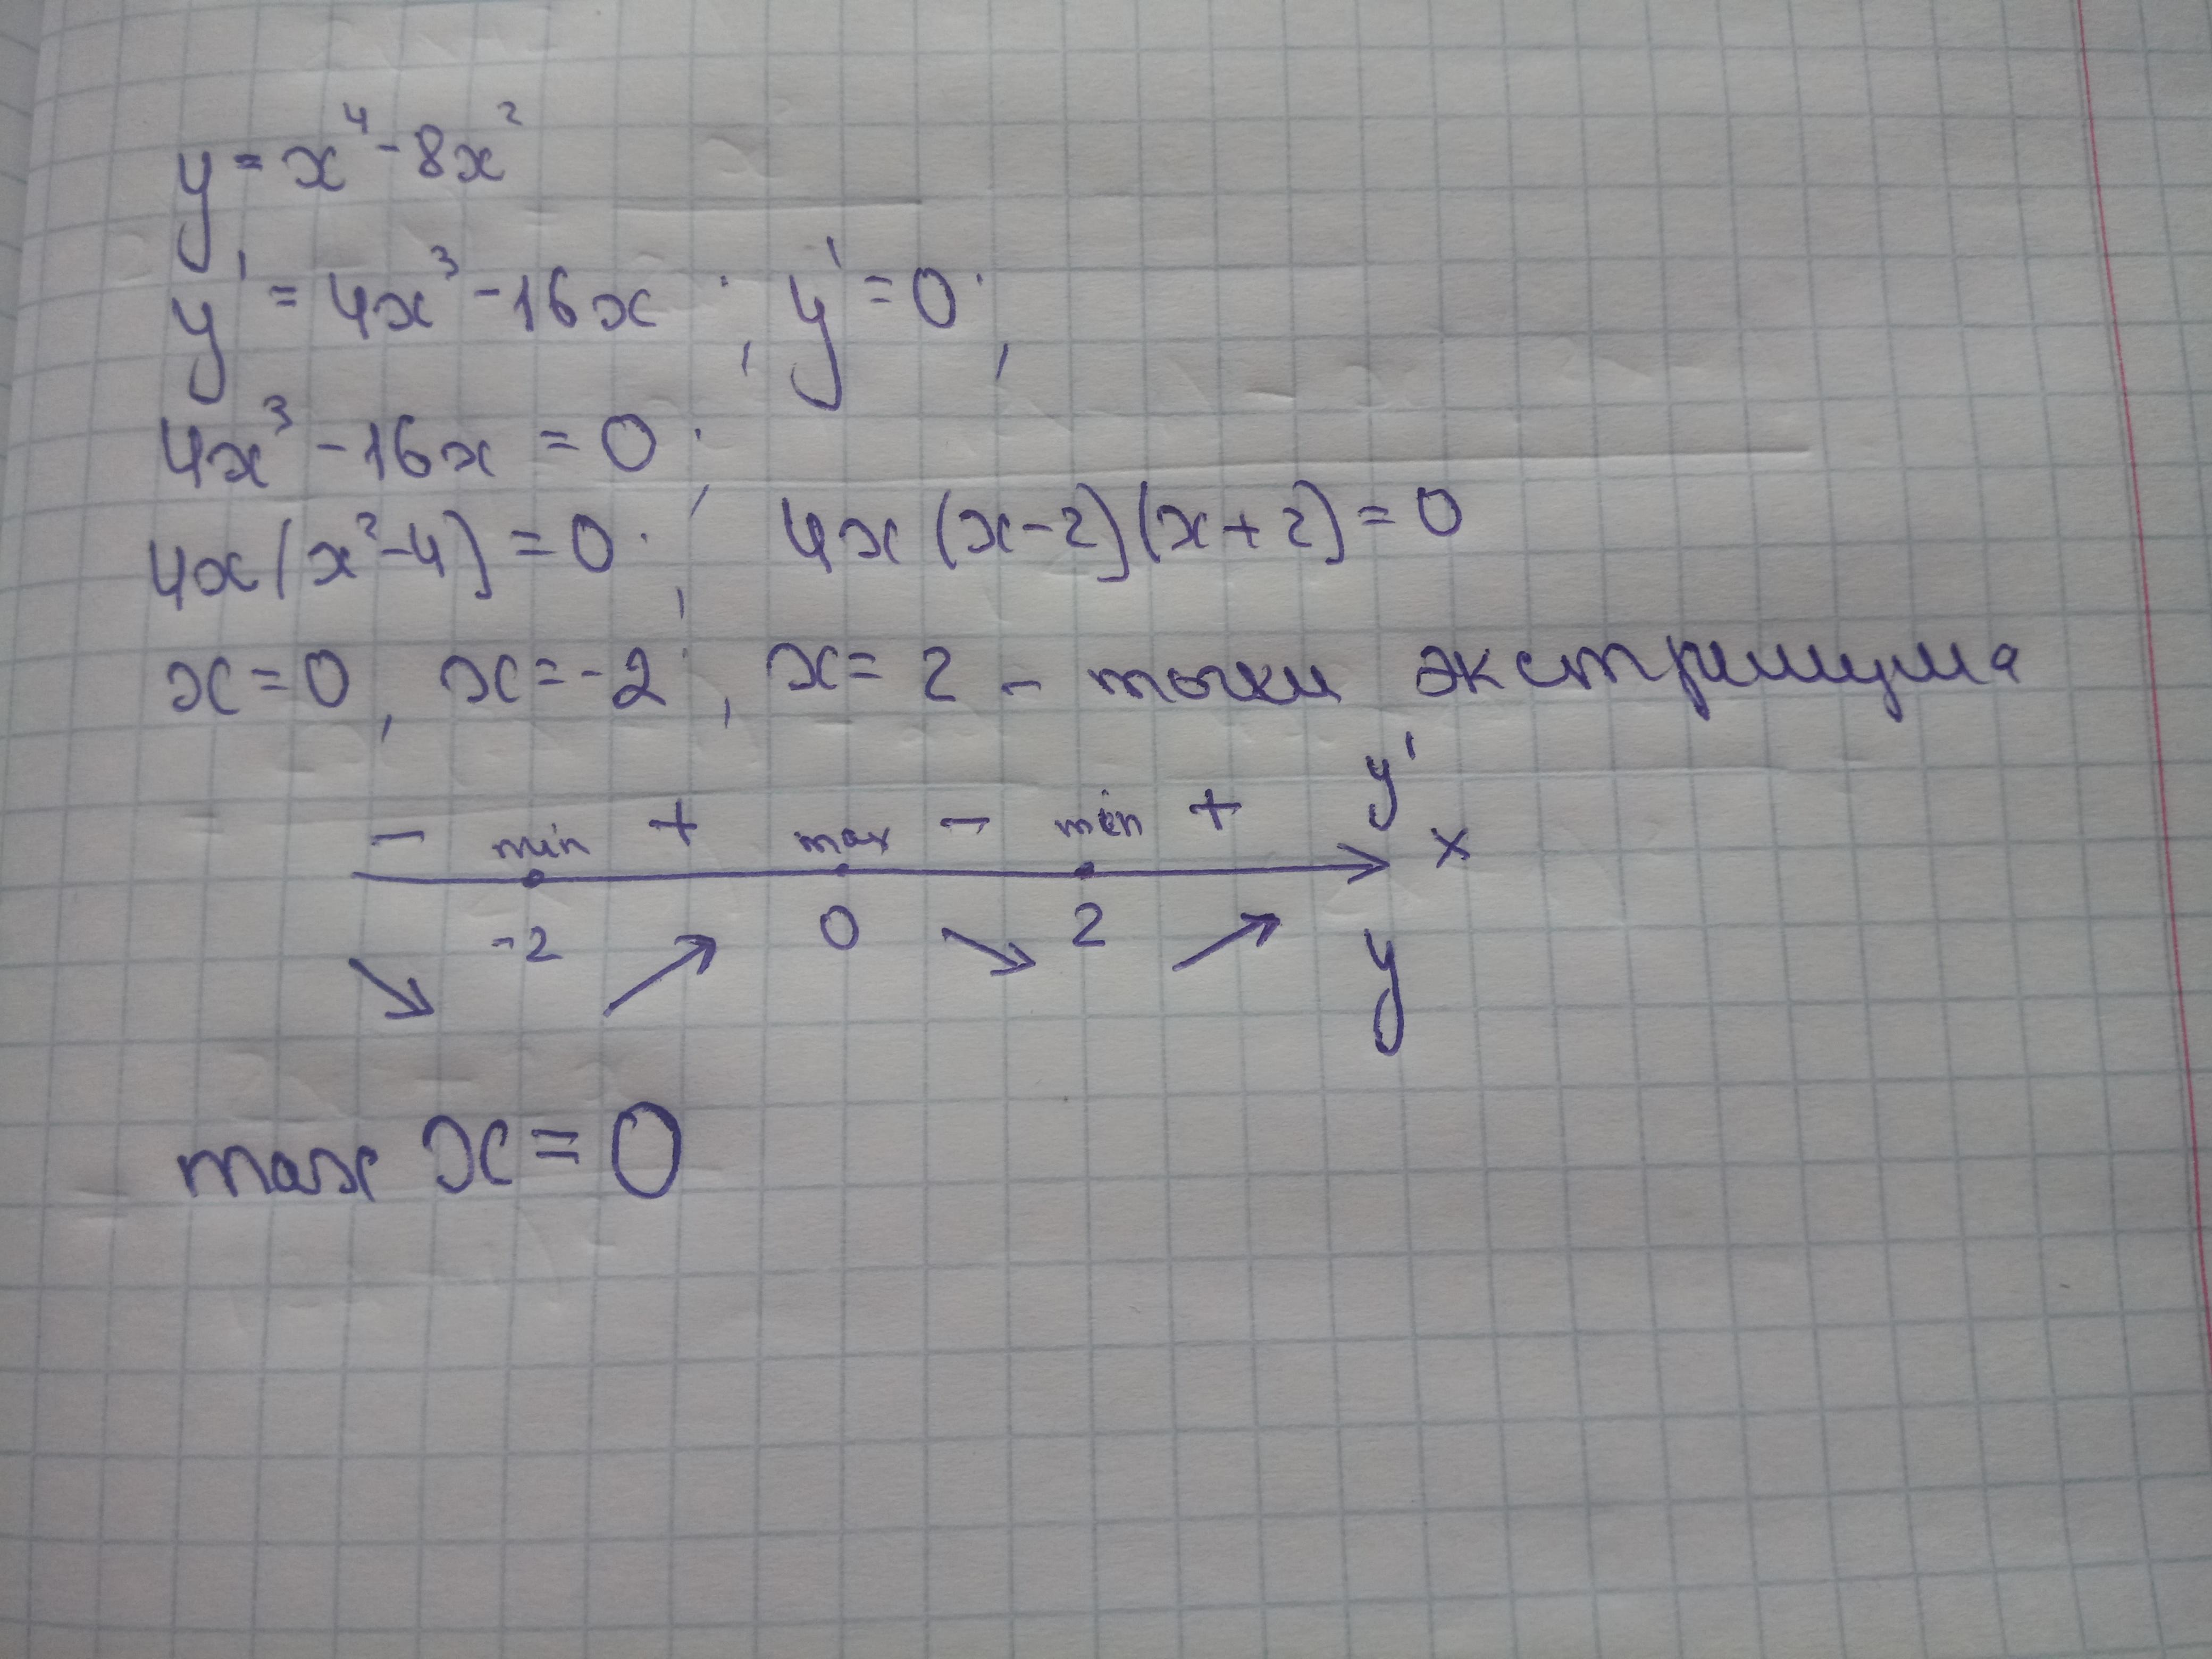 y = x⁴ - 8x²
y' = 4x³ - 16x ; y' = 0 ;
4x³ - 16x = 0 ;
4x(x² - 4) = 0 ; 4x(x - 2)(x + 2) = 0
x = 0, x = -2 ; x = 2 - точки экстремума
y'
- min + max - min + x
-2 0 2
y
max x = 0